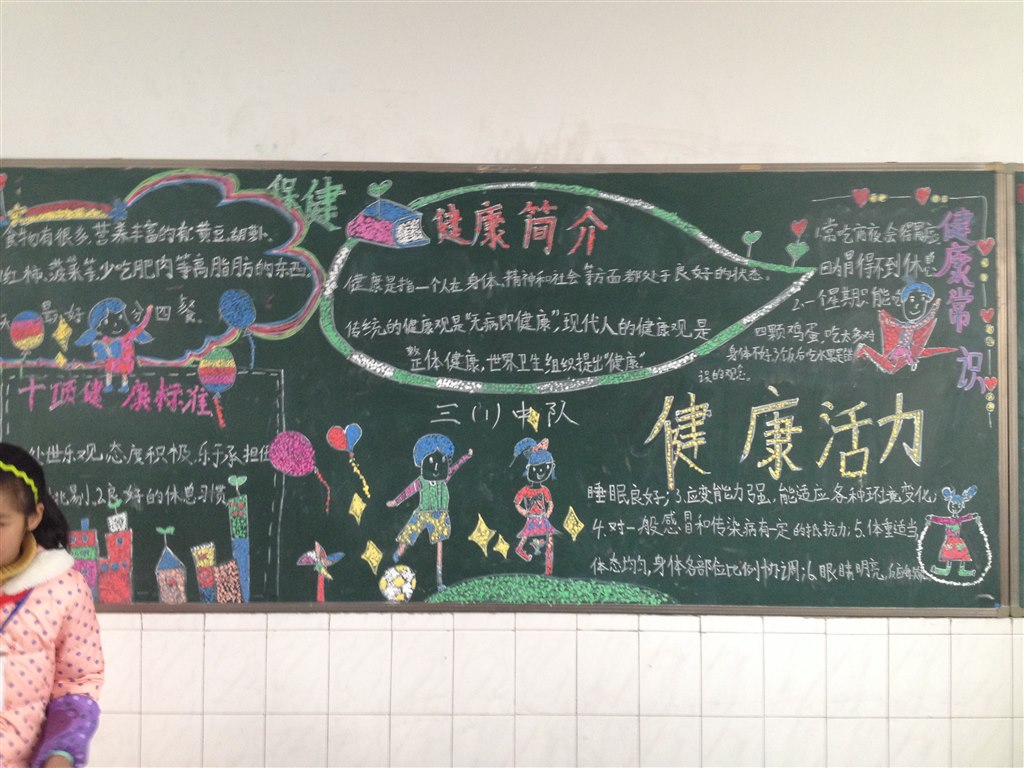 保健
食物有很多,营养丰富的有:黄豆、胡萝卜
红柿、菠菜等,少吃肥肉等高脂肪的东西
最好
四餐。
十项健康标准
处世乐观,态度积极,乐于承担
2良好的休息习惯
健康简介
健康是指一个人在身体、精神和社会等方面都处于良好的状态。
传统的健康观是“无病即健康”,现代人的健康观是
整体健康,世界卫生组织提出“健康”
三(1)中队
健康常识
1常吃宵夜会得胃癌
因胃得不到休息
2.一个星期只能吃
四颗鸡蛋,吃太多对
身体不好.3饭后吃水果是错
误的观念。
健康活力
睡眠良好;3.应变能力强,能适应各种环境变化;
4.对一般感冒和传染病有一定的抵抗力;5.体重适当,
体态均匀,身体各部位比例协调;6.眼睛明亮,